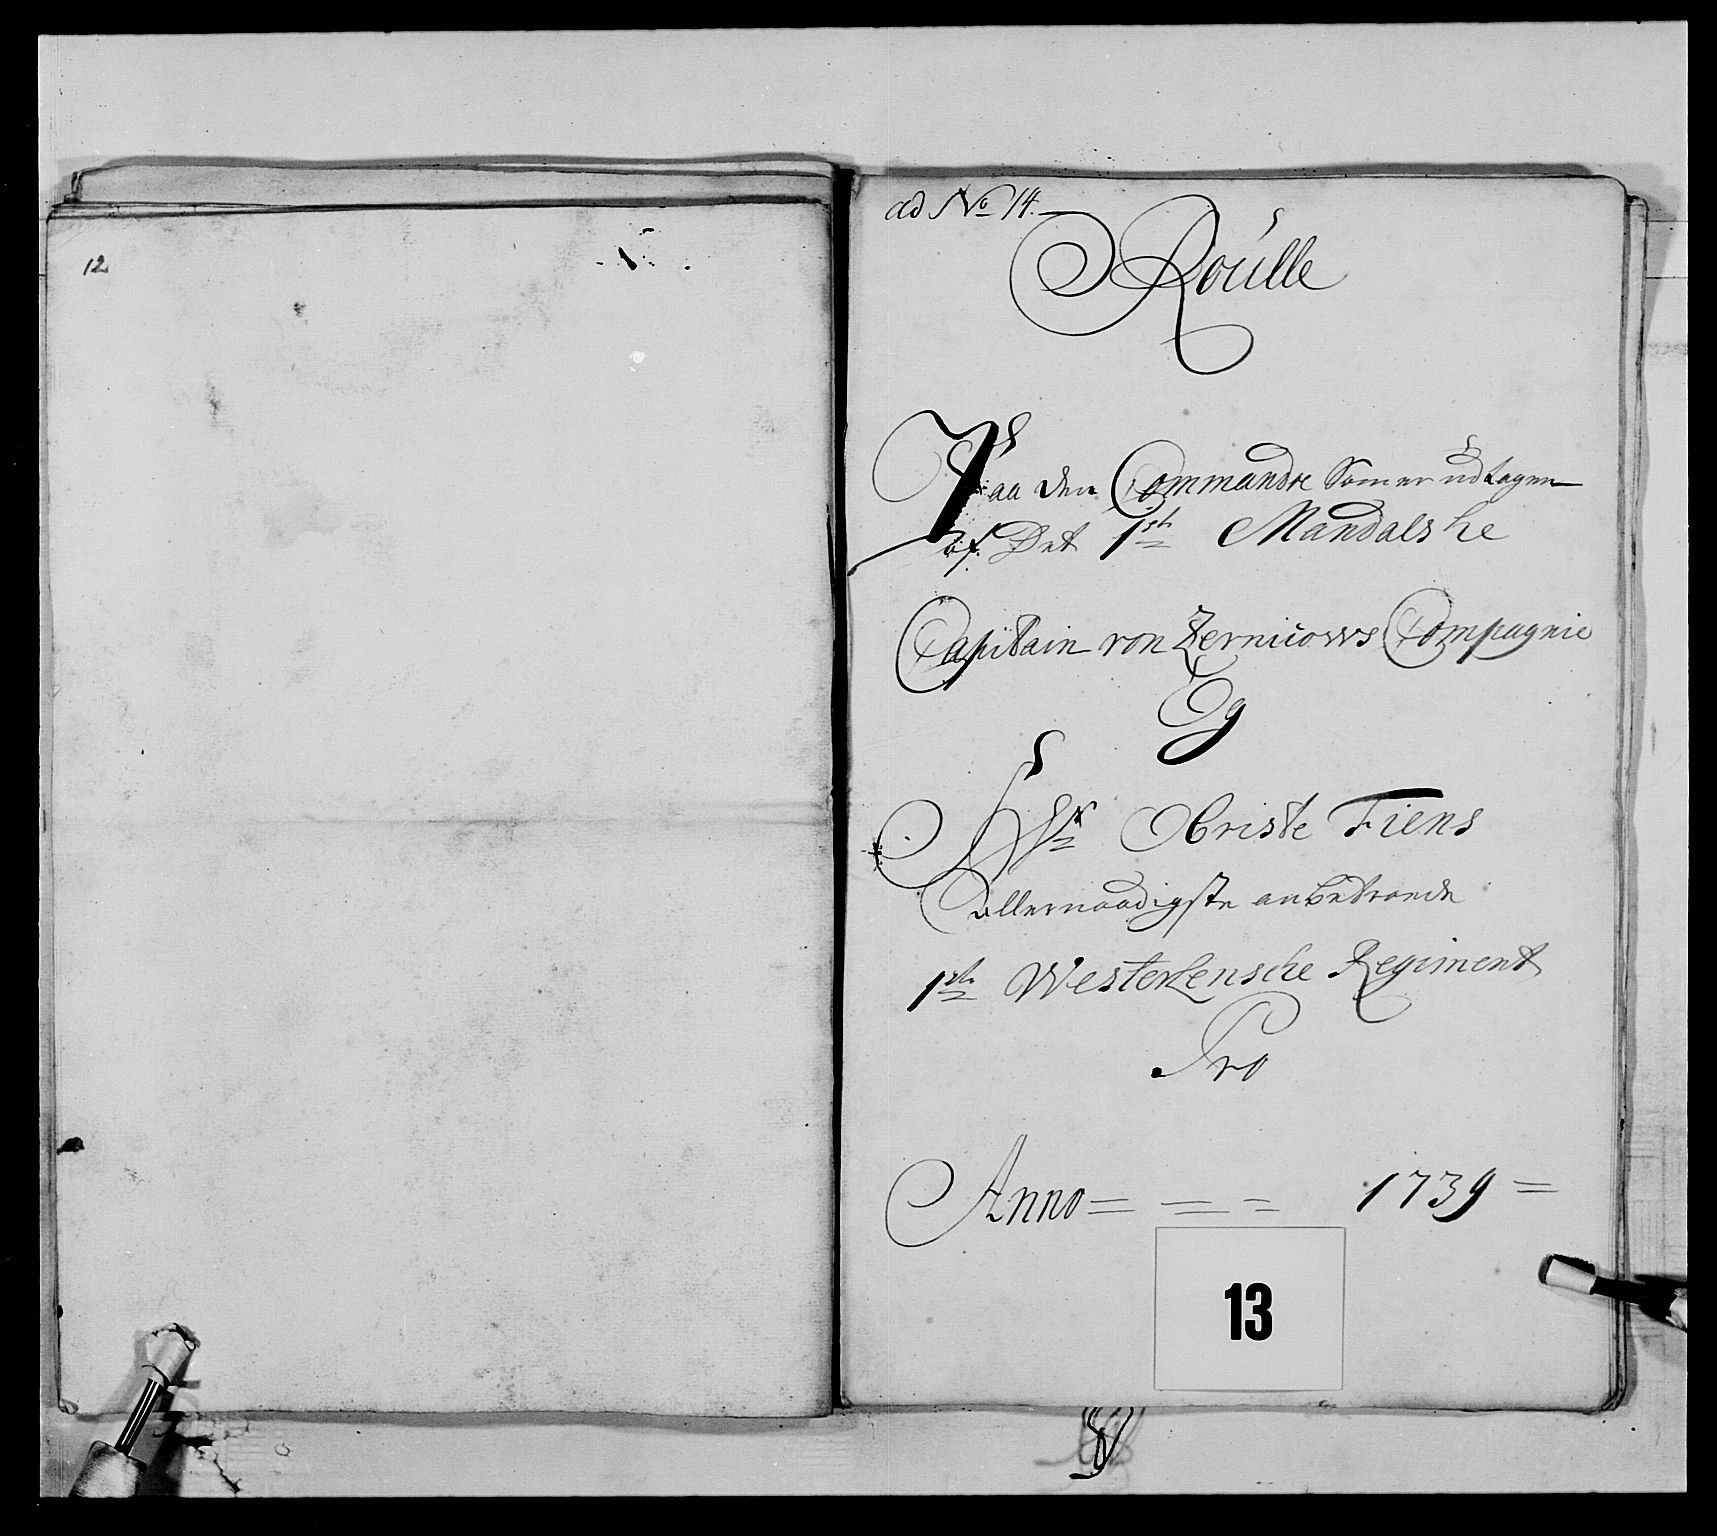 12
ad No 14.
Roúlle
Paa den Commandre Som er udtagen
af Det 1ste Mandalske
Capitain von Zernicows Compagnie
Og
Hr Obriste Fiens
allernaadigste anbetroede
1ste Westerlensche Regiment
Pro
Anno = = = 1739 =
13